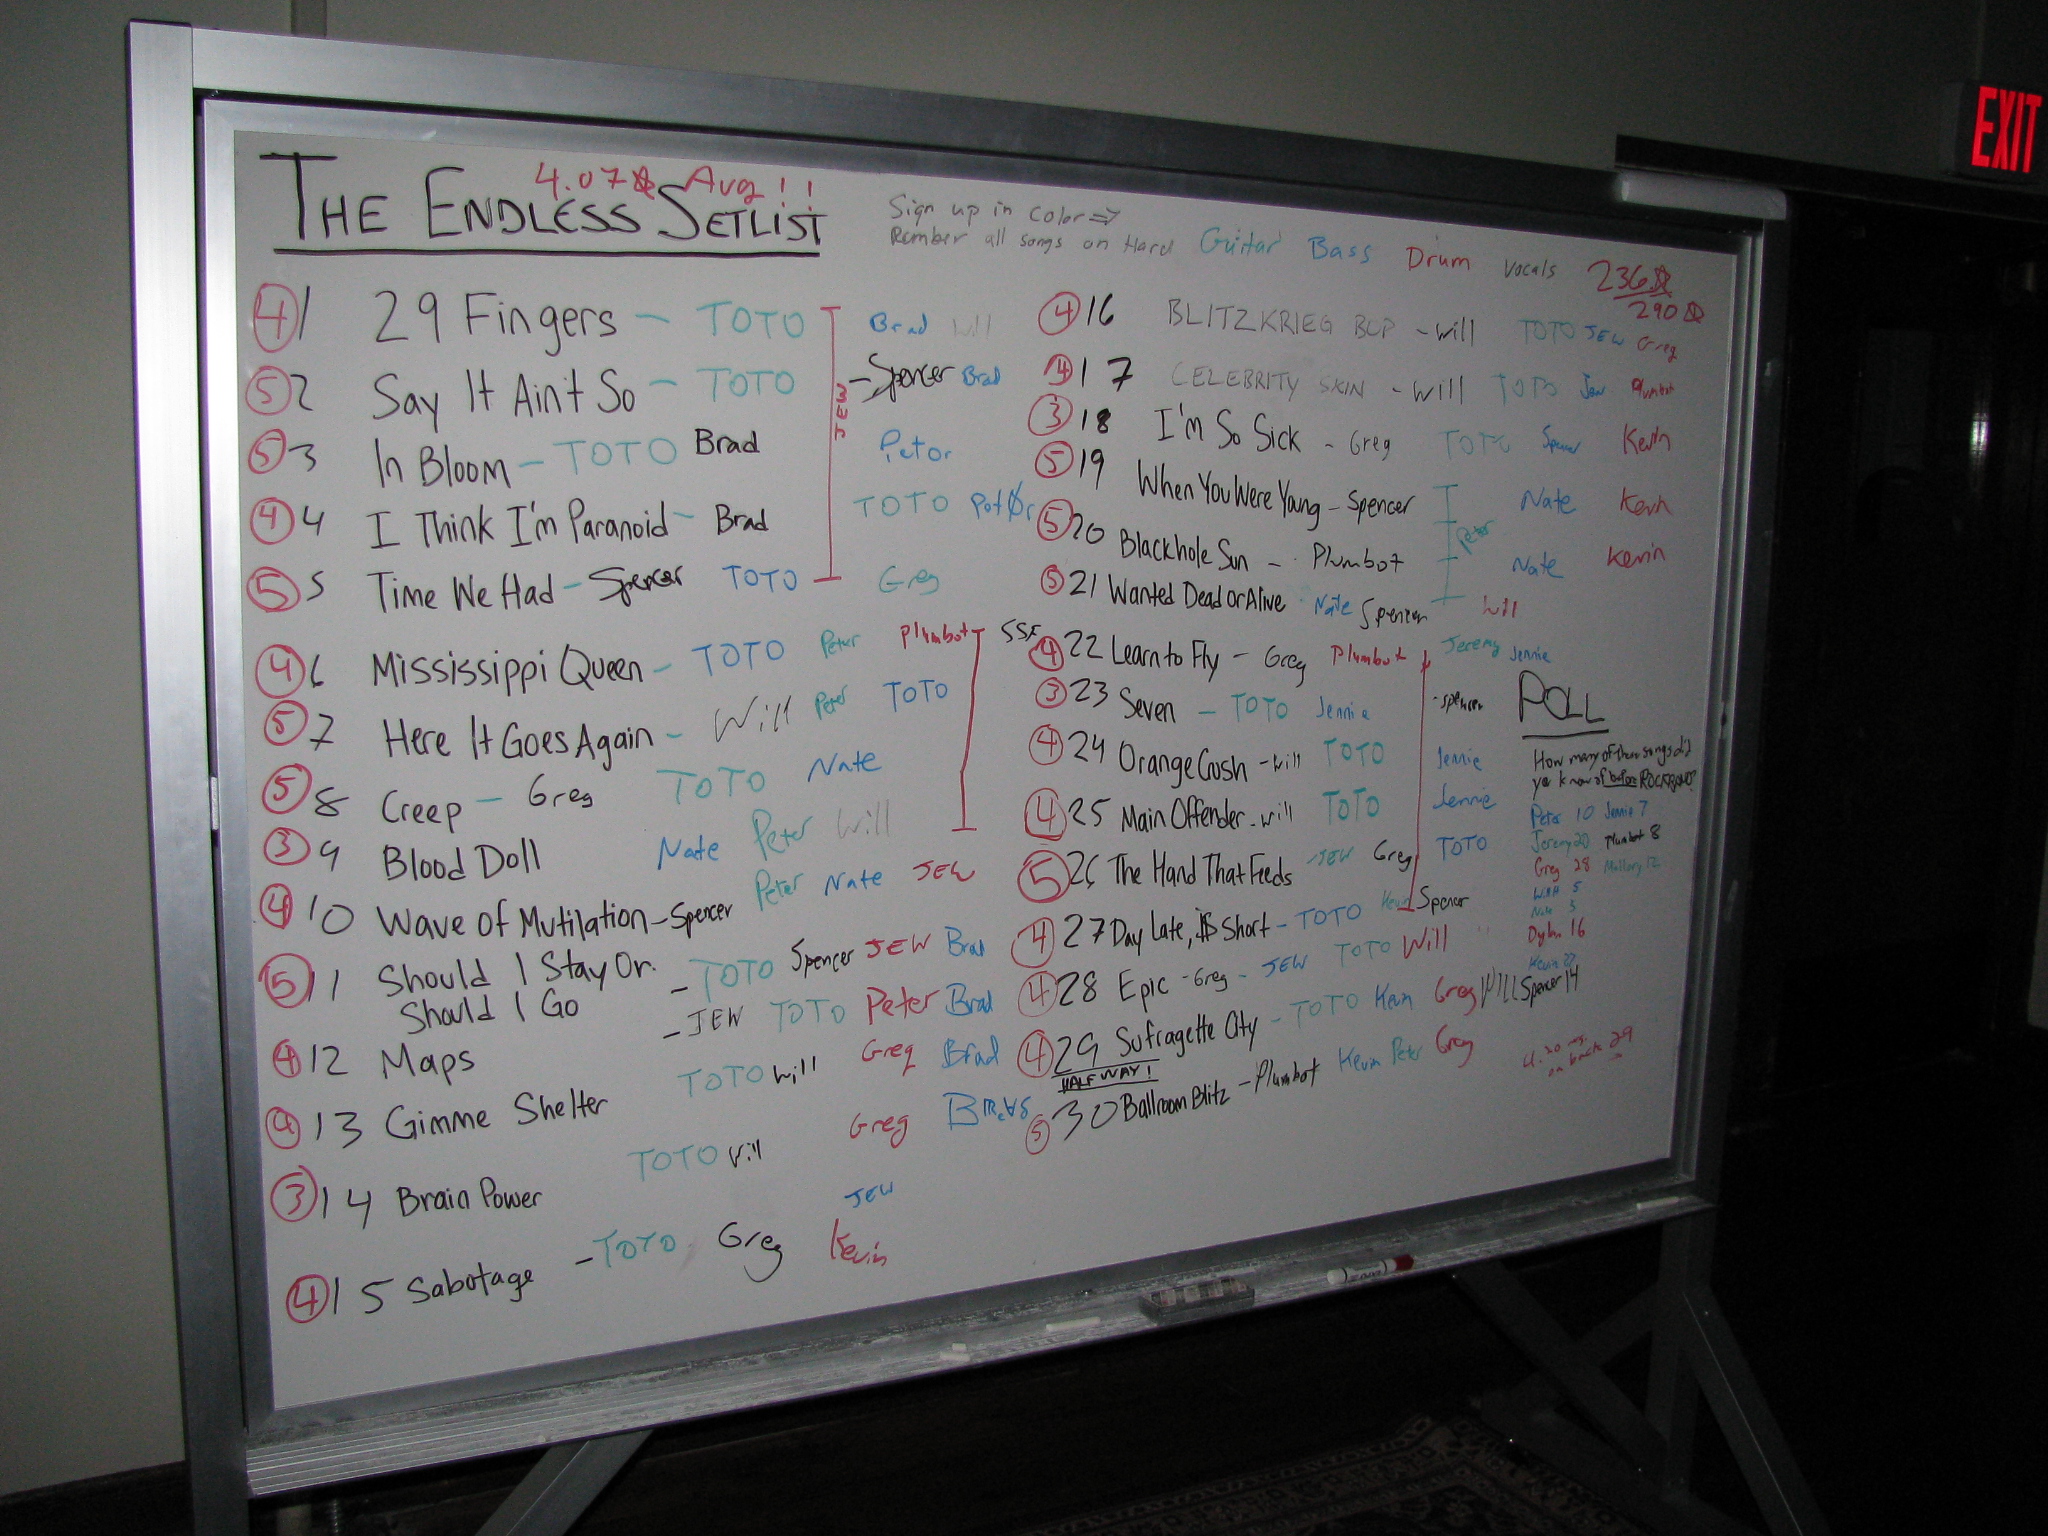 EXIT
4.07☆ Avg!!
THE ENDLESS SETLIST
Sign up in color =>
Rember all songs on Hard Guitar Bass Drum vocals
236☆
290☆
④ 1 29 Fingers - TOTO Brad Will
⑤ 2 Say It Ain't So - TOTO - Spencer Brad
JEW
⑤ 3 In Bloom - TOTO Brad Peter
④ 4 I Think I'm Paranoid - Brad TOTO
⑤ 5 Time We Had - Spencer TOTO Greg
④ 6 Mississippi Queen - TOTO Peter Plumbot
⑤ 7 Here It Goes Again - Will Peter TOTO
⑤ 8 Creep - Greg TOTO Nate
③ 9 Blood Doll Nate Peter Will
④ 10 Wave of Mutilation - Spencer Peter Nate JEW
⑤ 11 Should I Stay Or - TOTO Spencer JEW Brad
Should I Go
④ 12 Maps - JEW TOTO Peter Brad
④ 13 Gimme Shelter TOTO Will Greg Brad
③ 14 Brain Power TOTO Will Greg
④ 15 Sabotage - TOTO Greg Kevin JEW
④ 16 BLITZKRIEG BOP - Will TOTO JEW Greg
④ 17 CELEBRITY SKIN - Will TOTO Jew Plumbot
③ 18 I'm So Sick - Greg TOTO Spencer Kevin
⑤ 19 When You Were Young - Spencer Nate Kevin
Peter
⑤ 20 Blackhole Sun - Plumbot Nate Kevin
⑤ 21 Wanted Dead or Alive Nate Spencer Will
④ 22 Learn to Fly - Greg Plumbot Jeremy Jennie
③ 23 Seven - TOTO Jennie - Spencer
④ 24 Orange Crush - Will TOTO Jennie
④ 25 Main Offender - Will TOTO Jennie
⑤ 26 The Hand That Feeds JEW Greg TOTO
④ 27 Day Late, $ Short - TOTO Kevin Spencer
④ 28 Epic - Greg - JEW TOTO Will
④ 29 Sufragette City - TOTO Kevin Greg
HALF WAY!
⑤ 30 Ballroom Blitz - Plumbot Kevin Peter Greg
POLL
How many of these songs did
you know of before ROCKBAND?
Peter 10 Jennie 7
Jeremy 20 Plumbot 8
Greg 28 Mallory 12
Will 5
Nate 3
Dylan 16
Kevin 27
Spencer 14
on back 29